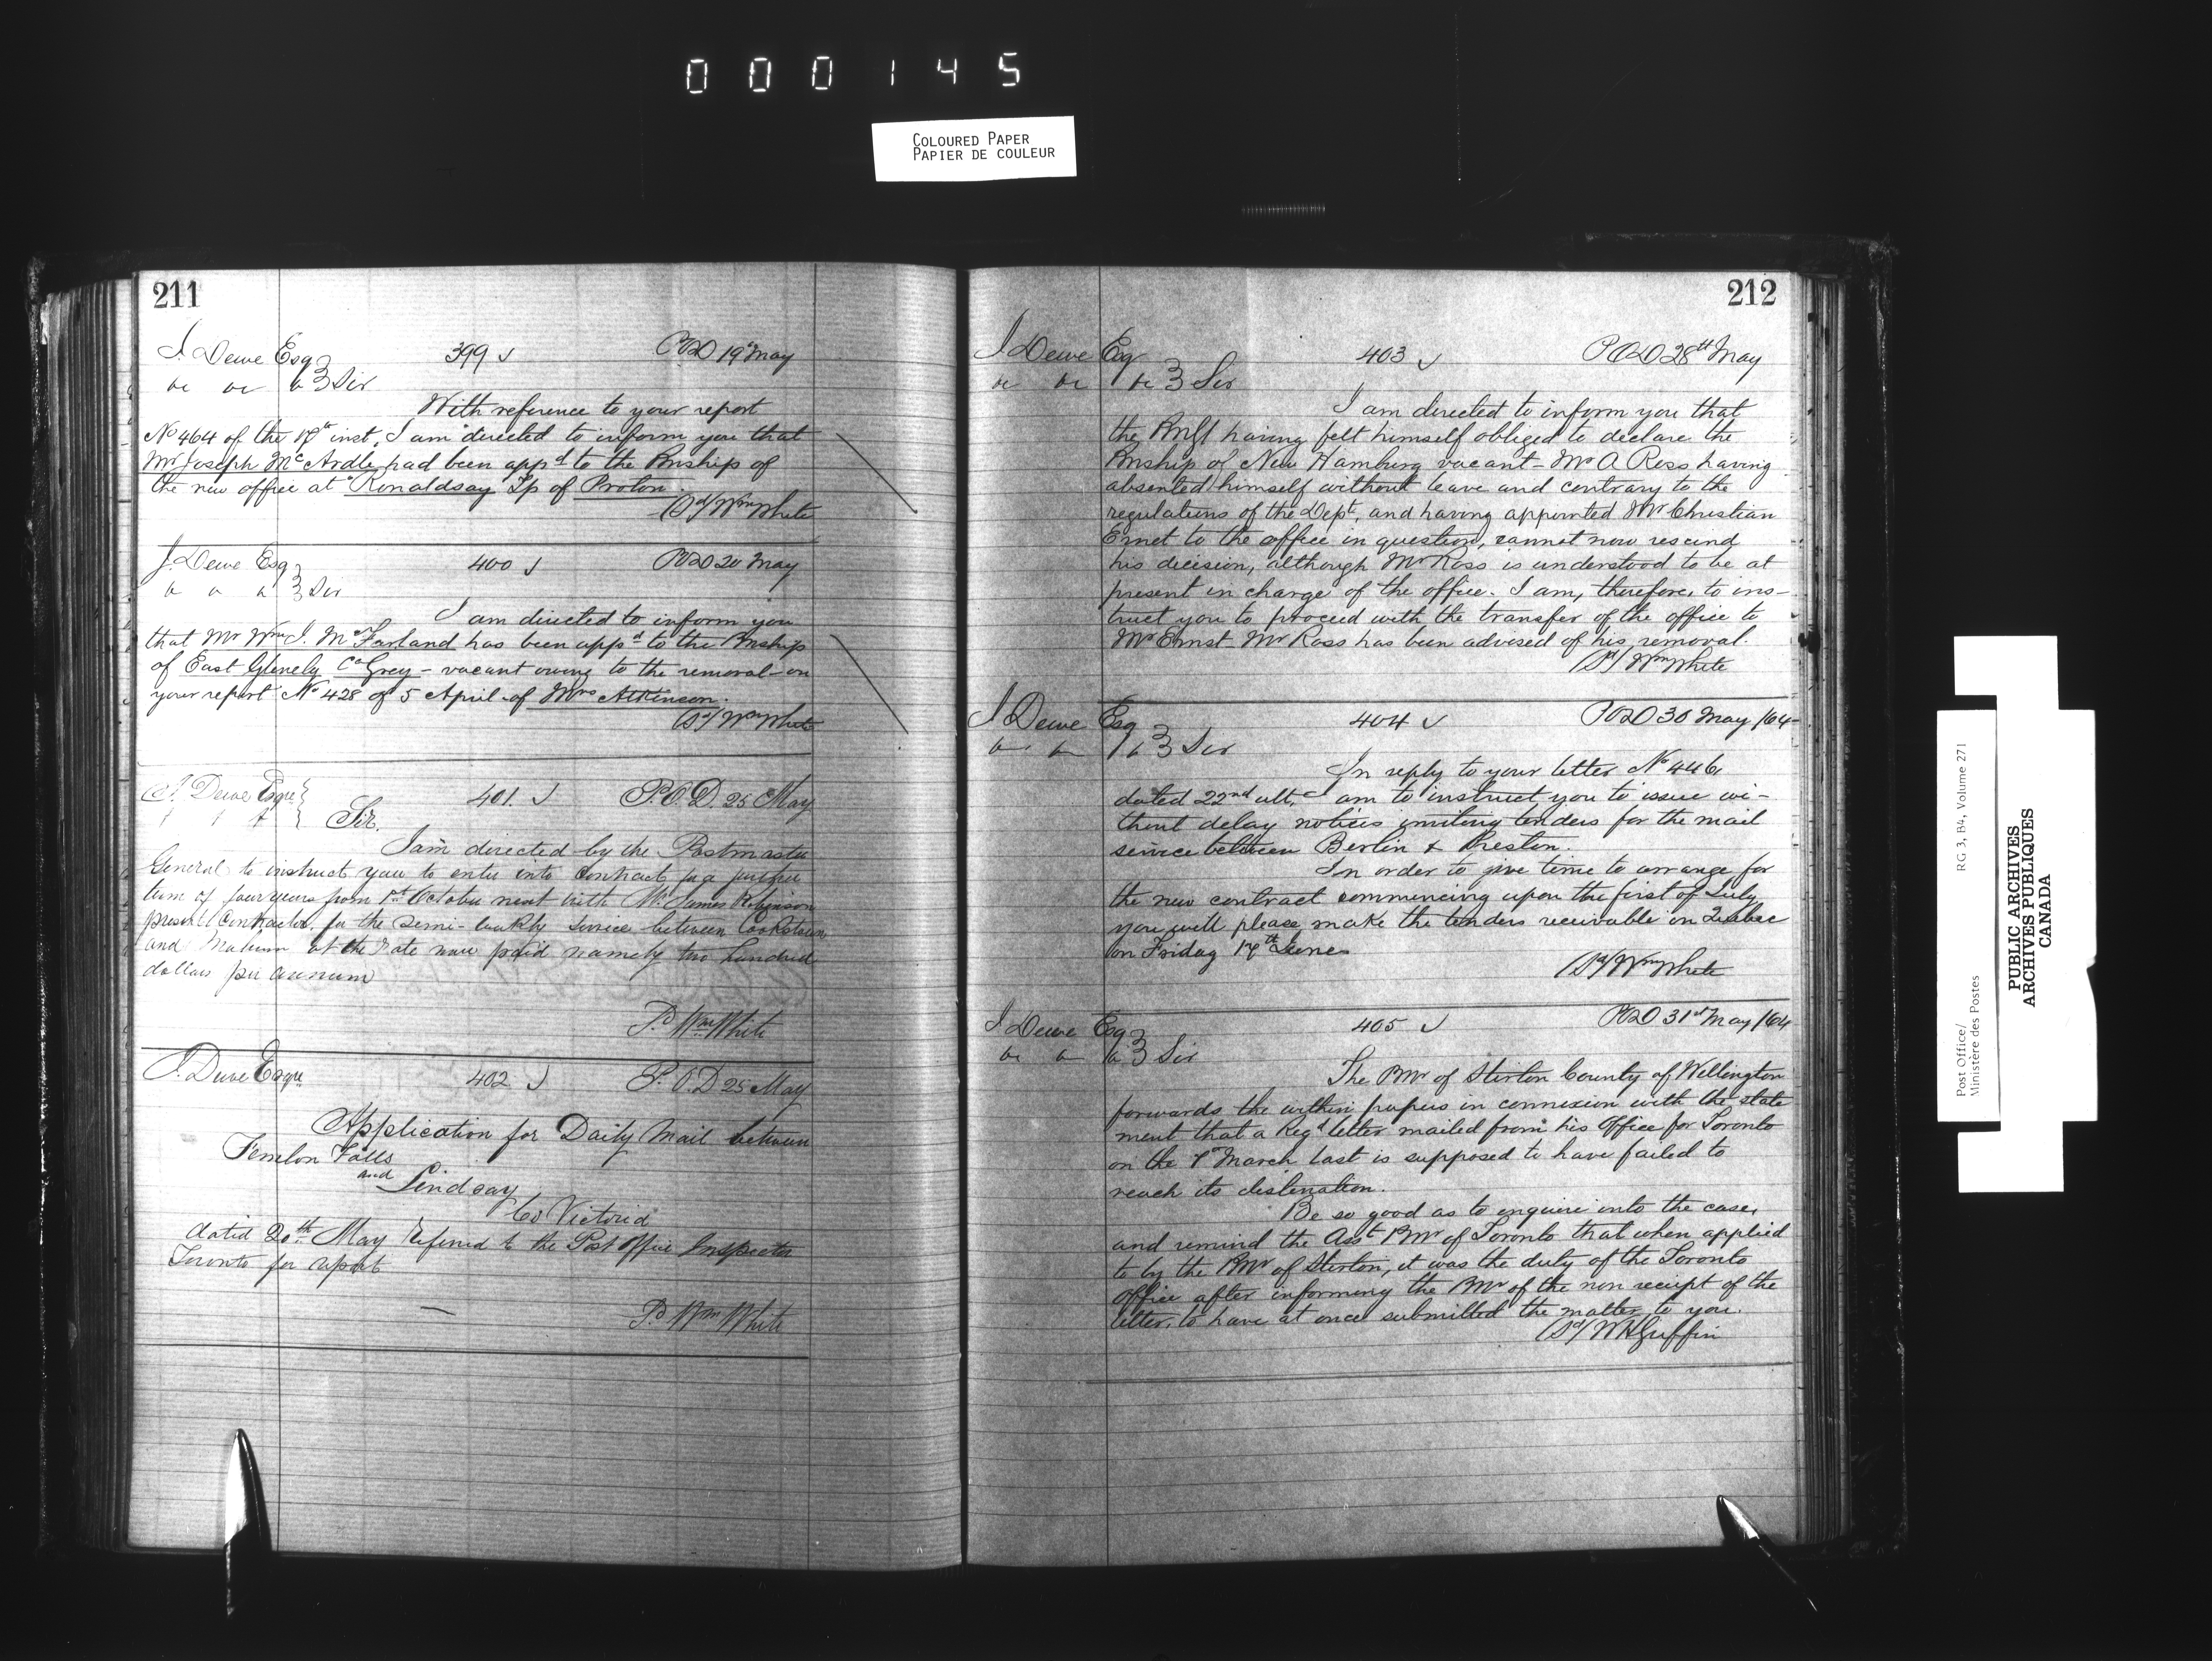 000145
COLOURED PAPER
PAPIER DE COULEUR
211
J. Dewe Esq 399 POD 19th May
Sir
With reference to your report
No 464 of the 17th inst, I am directed to inform you that
Mr Joseph McArdle had been appd to the Pmship of
the new office at Ronaldsay Tp of Proton.
(Sd/ Wm White
J. Dewe Esq 400 POD 20 May
Sir
I am directed to inform you
that Mr Wm J. McFarland has been appd to the Pmship
of East Glenelg Co Grey - vacant owing to the removal - on
your report No 428 of 5 April - of Mrs Atkinson.
(Sd/ Wm White
J. Dewe Esqre 401. P.O.D. 25 May
Sir.
I am directed by the Postmaster
General to instruct you to enter into contract for a further
term of four years from 1st October next with Mr James Robinson
present Contractor, for the Semi-weekly Service between Cookstown
and at the rate now paid namely two hundred
dollars per annum
Sd Wm White
J. Dewe Esqre 402 P.O.D 25 May
Application for Daily Mail between
Fenelon Falls
and Lindsay
Co Victoria
dated 20th May referred to the Post Office Inspector
Toronto for report
Sd Wm White
212
J Dewe Esq 403 POD 28th May
Sir
I am directed to inform you that
the PMGl having felt himself obliged to declare the
Pmship of New Hamburg vacant - Mr A Ross having
absented himself without leave and contrary to the
regulations of the Dept, and having appointed Mr Christian
Ernst to the office in question, cannot now rescind
his decision, although Mr Ross is understood to be at
present in charge of the office. I am, therefore, to ins-
truct you to proceed with the transfer of the office to
Mr Ernst - Mr Ross has been advised of his removal.
(Sd/ Wm White
J Dewe Esq 404 POD 30 May /64
Sir
In reply to your letter No 446,
dated 22nd ult, I am to instruct you to issue wi-
thout delay notices inviting tenders for the mail
service between Berlin & Preston.
In order to give time to arrange for
the new contract commencing upon the first of July
you will please make the tenders receivable in Quebec
on Friday 17th June
(Sd/ Wm White
J Dewe Esq 405 POD 31st May /64
Sir
The PMr of Stirton County of Wellington
forwards the within papers in connexion with the state
ment that a Regd letter mailed from his Office for Toronto
on the March last is supposed to have failed to
reach its destination.
Be so good as to enquire into the case,
and remind the Asst PMr of Toronto that when applied
to by the PMr of Stirton, it was the duty of the Toronto
office after informing the PMr of the non receipt of the
letter, to have at once submitted the matter to you.
(Sd/ WHGriffin
Post Office/ RG 3, B4, Volume 271
Ministère des Postes
PUBLIC ARCHIVES
ARCHIVES PUBLIQUES
CANADA